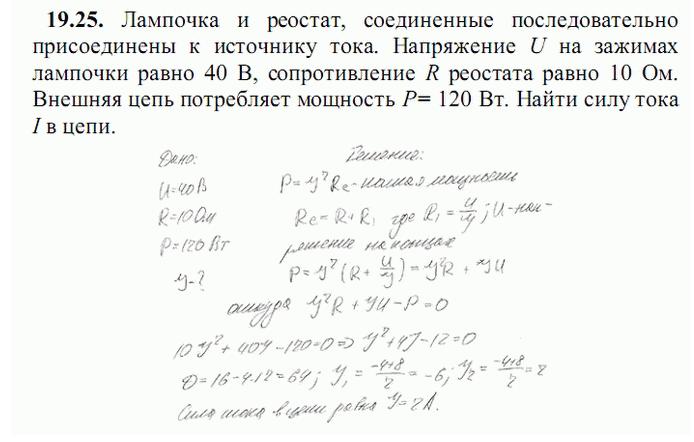 19.25. Лампочка и реостат, соединенные последовательно
присоединены к источнику тока. Напряжение U на зажимах
лампочки равно 40 В, сопротивление R реостата равно 10 Ом.
Внешняя цепь потребляет мощность P= 120 Вт. Найти силу тока
I в цепи.
Дано: Решение:
U=40В P=y²Re-полная мощность
R=10Ом Re=R+R₁ где R₁=U/y; U-нап-
P=120Вт ряжение на концах
y-? P=y²(R+U/y)=y²R+yU
откуда y²R+yU-P=0
10y²+40y-120=0=>y²+4y-12=0
D=16-4·12=64; y₁=(-4+8)/2=-6; y₂=(-4+8)/2=2
Сила тока в цепи равна y=2А.